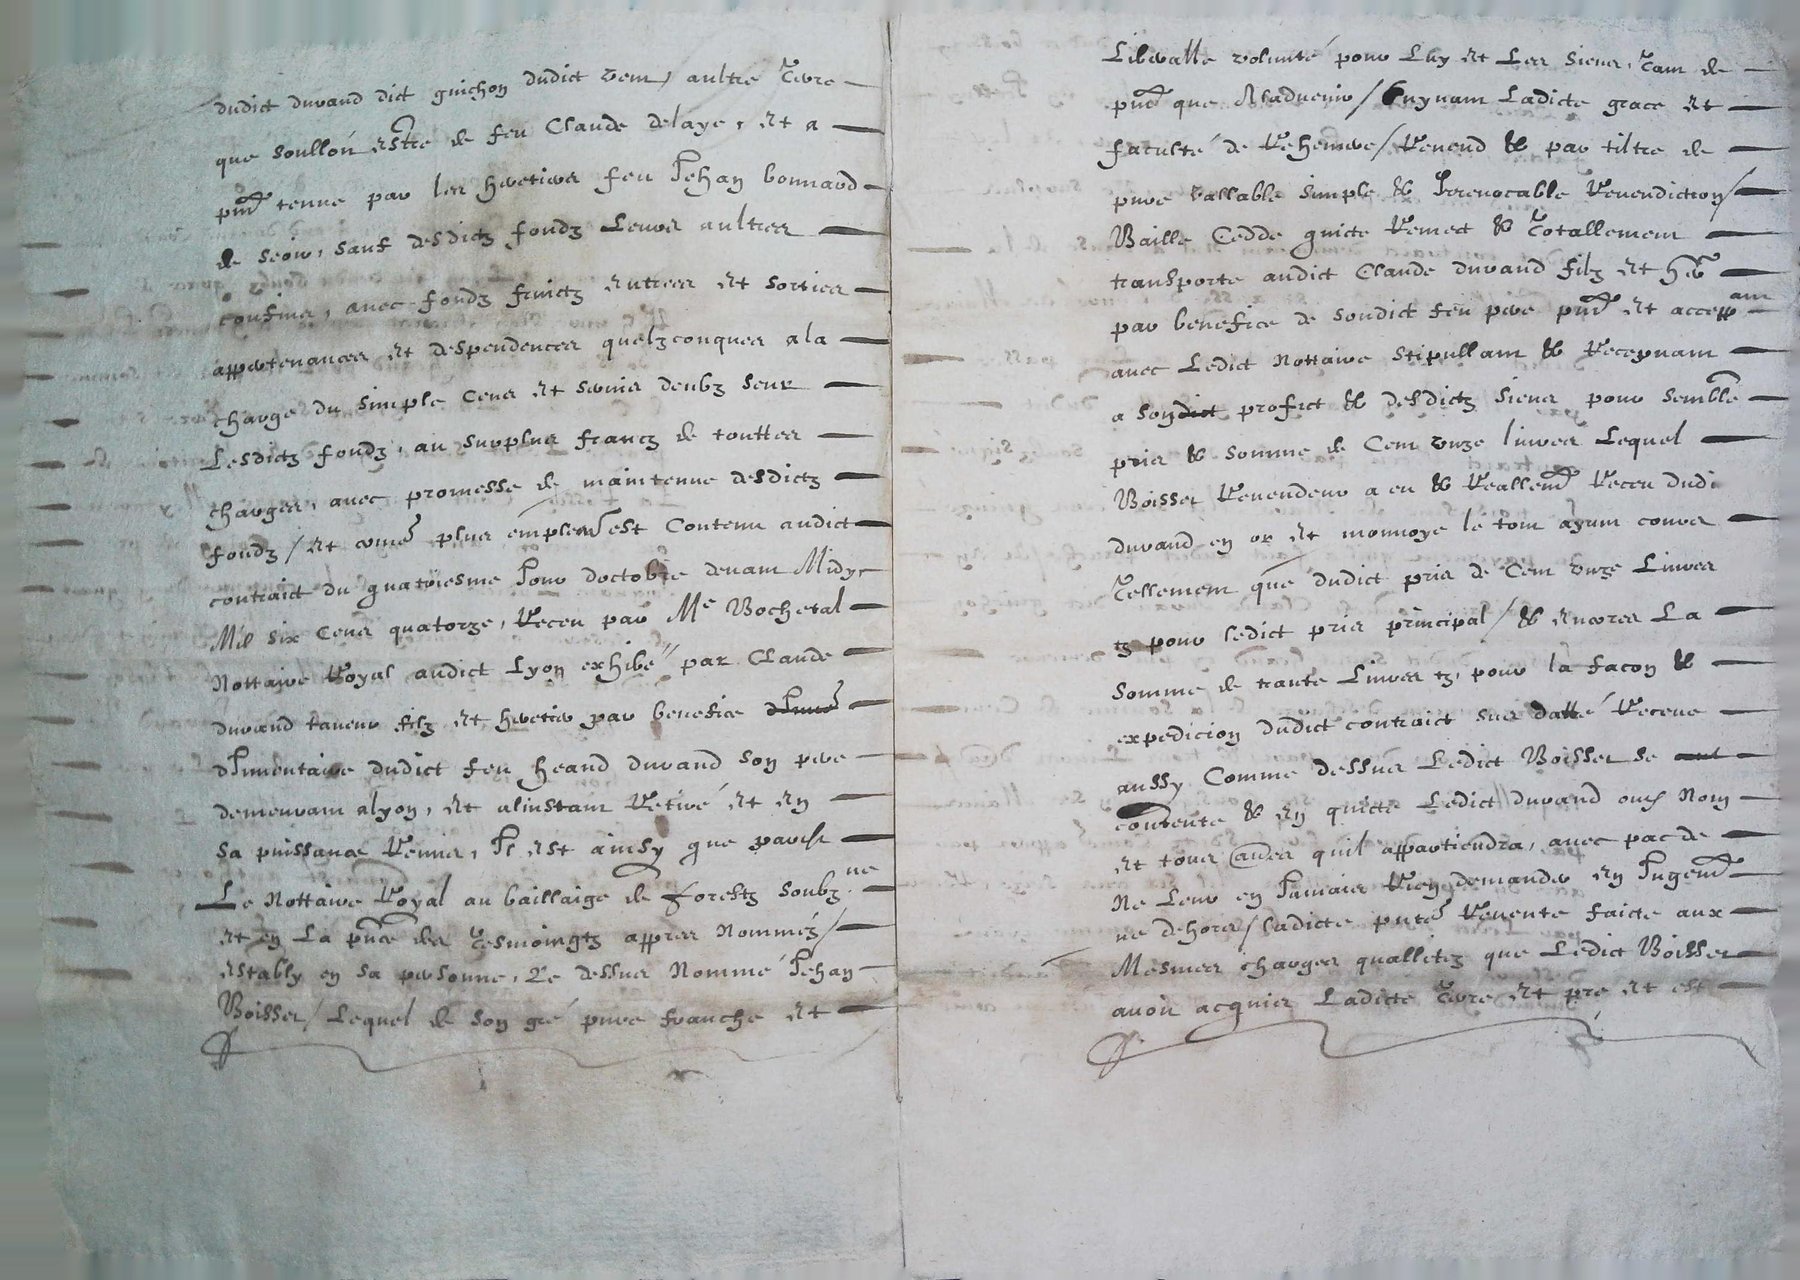 dudict durand dict guichon dudict vent, aultre terre
que soulloit estre de feu Claude delaye, et a
pnt tenue par les heretiers feu Jehan bonnard
de soir, sauf desdictz fondz leurs aultres
confins, avec fondz fruictz entrees et sorties
appertenances et despendences quelzconques a la
charge du simple cens et servis deubz seur
Lesdictz fondz, au surplus francz de touttes
charges, avec promesse de maintenue desdictz
fondz / et come plus emplemt est Contenu audict
contraict du quatriesme Jour doctobre devant Midy
Mil six Cens quatorze, Receu par Me Bochetal
Nottaire Royal audict Lyon exhibé par Claude
durand taneur filz et heretier par benefice
dInventaire dudict feu heand durand son pere
demeurant a lyon, et a linstant Retiré et en
sa puissance Remis, Et est ainsy que pardt
Le Nottaire Royal au baillaige de forestz soubzne
et en La pnce des Tesmoingtz appres Nommés /
estably en sa personne, Le dessus Nommé Jehan
Boisset / Lequel de son gré pure franche et
Liberalle volunté pour Luy et Les siens, Tant de
pnt que A ladvenir / Suyvant Ladicte grace et
faculté de Rehemere / Revend & par tiltre de
pure vallable simple & Irrevocable Revendiction /
Baille Cedde quicte Remect & Totallement
transporte audict Claude durand filz et her
par benefice de sondict feu pere pnt et acceptant
avec Ledict Nottaire stipullant & Recepvant
a son profict & desdictz siens pour semble
pris & somme de Cent unze livres Lequel
Boisset Revendeur a eu & Reallemt Receu dudi
durand en or et monnoye le tout ayant cours
Tellement que dudict pris de Cent unze Livres
tz pour ledict pris principal / & encores La
somme de trante Livres tz, pour la facon &
expedicion dudict contraict sus datté Receue
aussy Comme dessus Ledict Boisset se
contente & en quicte Ledict durand ouz Nom
et tous aultres quil appartiendra, avec pac de
Ne Leur en Jamais Rien demander en Jugemt
ne dehors / ladicte pnte Revente faicte aux
Mesmes charges qualletez que Ledict Boisset
avoit acquis Ladicte terre et pre et est